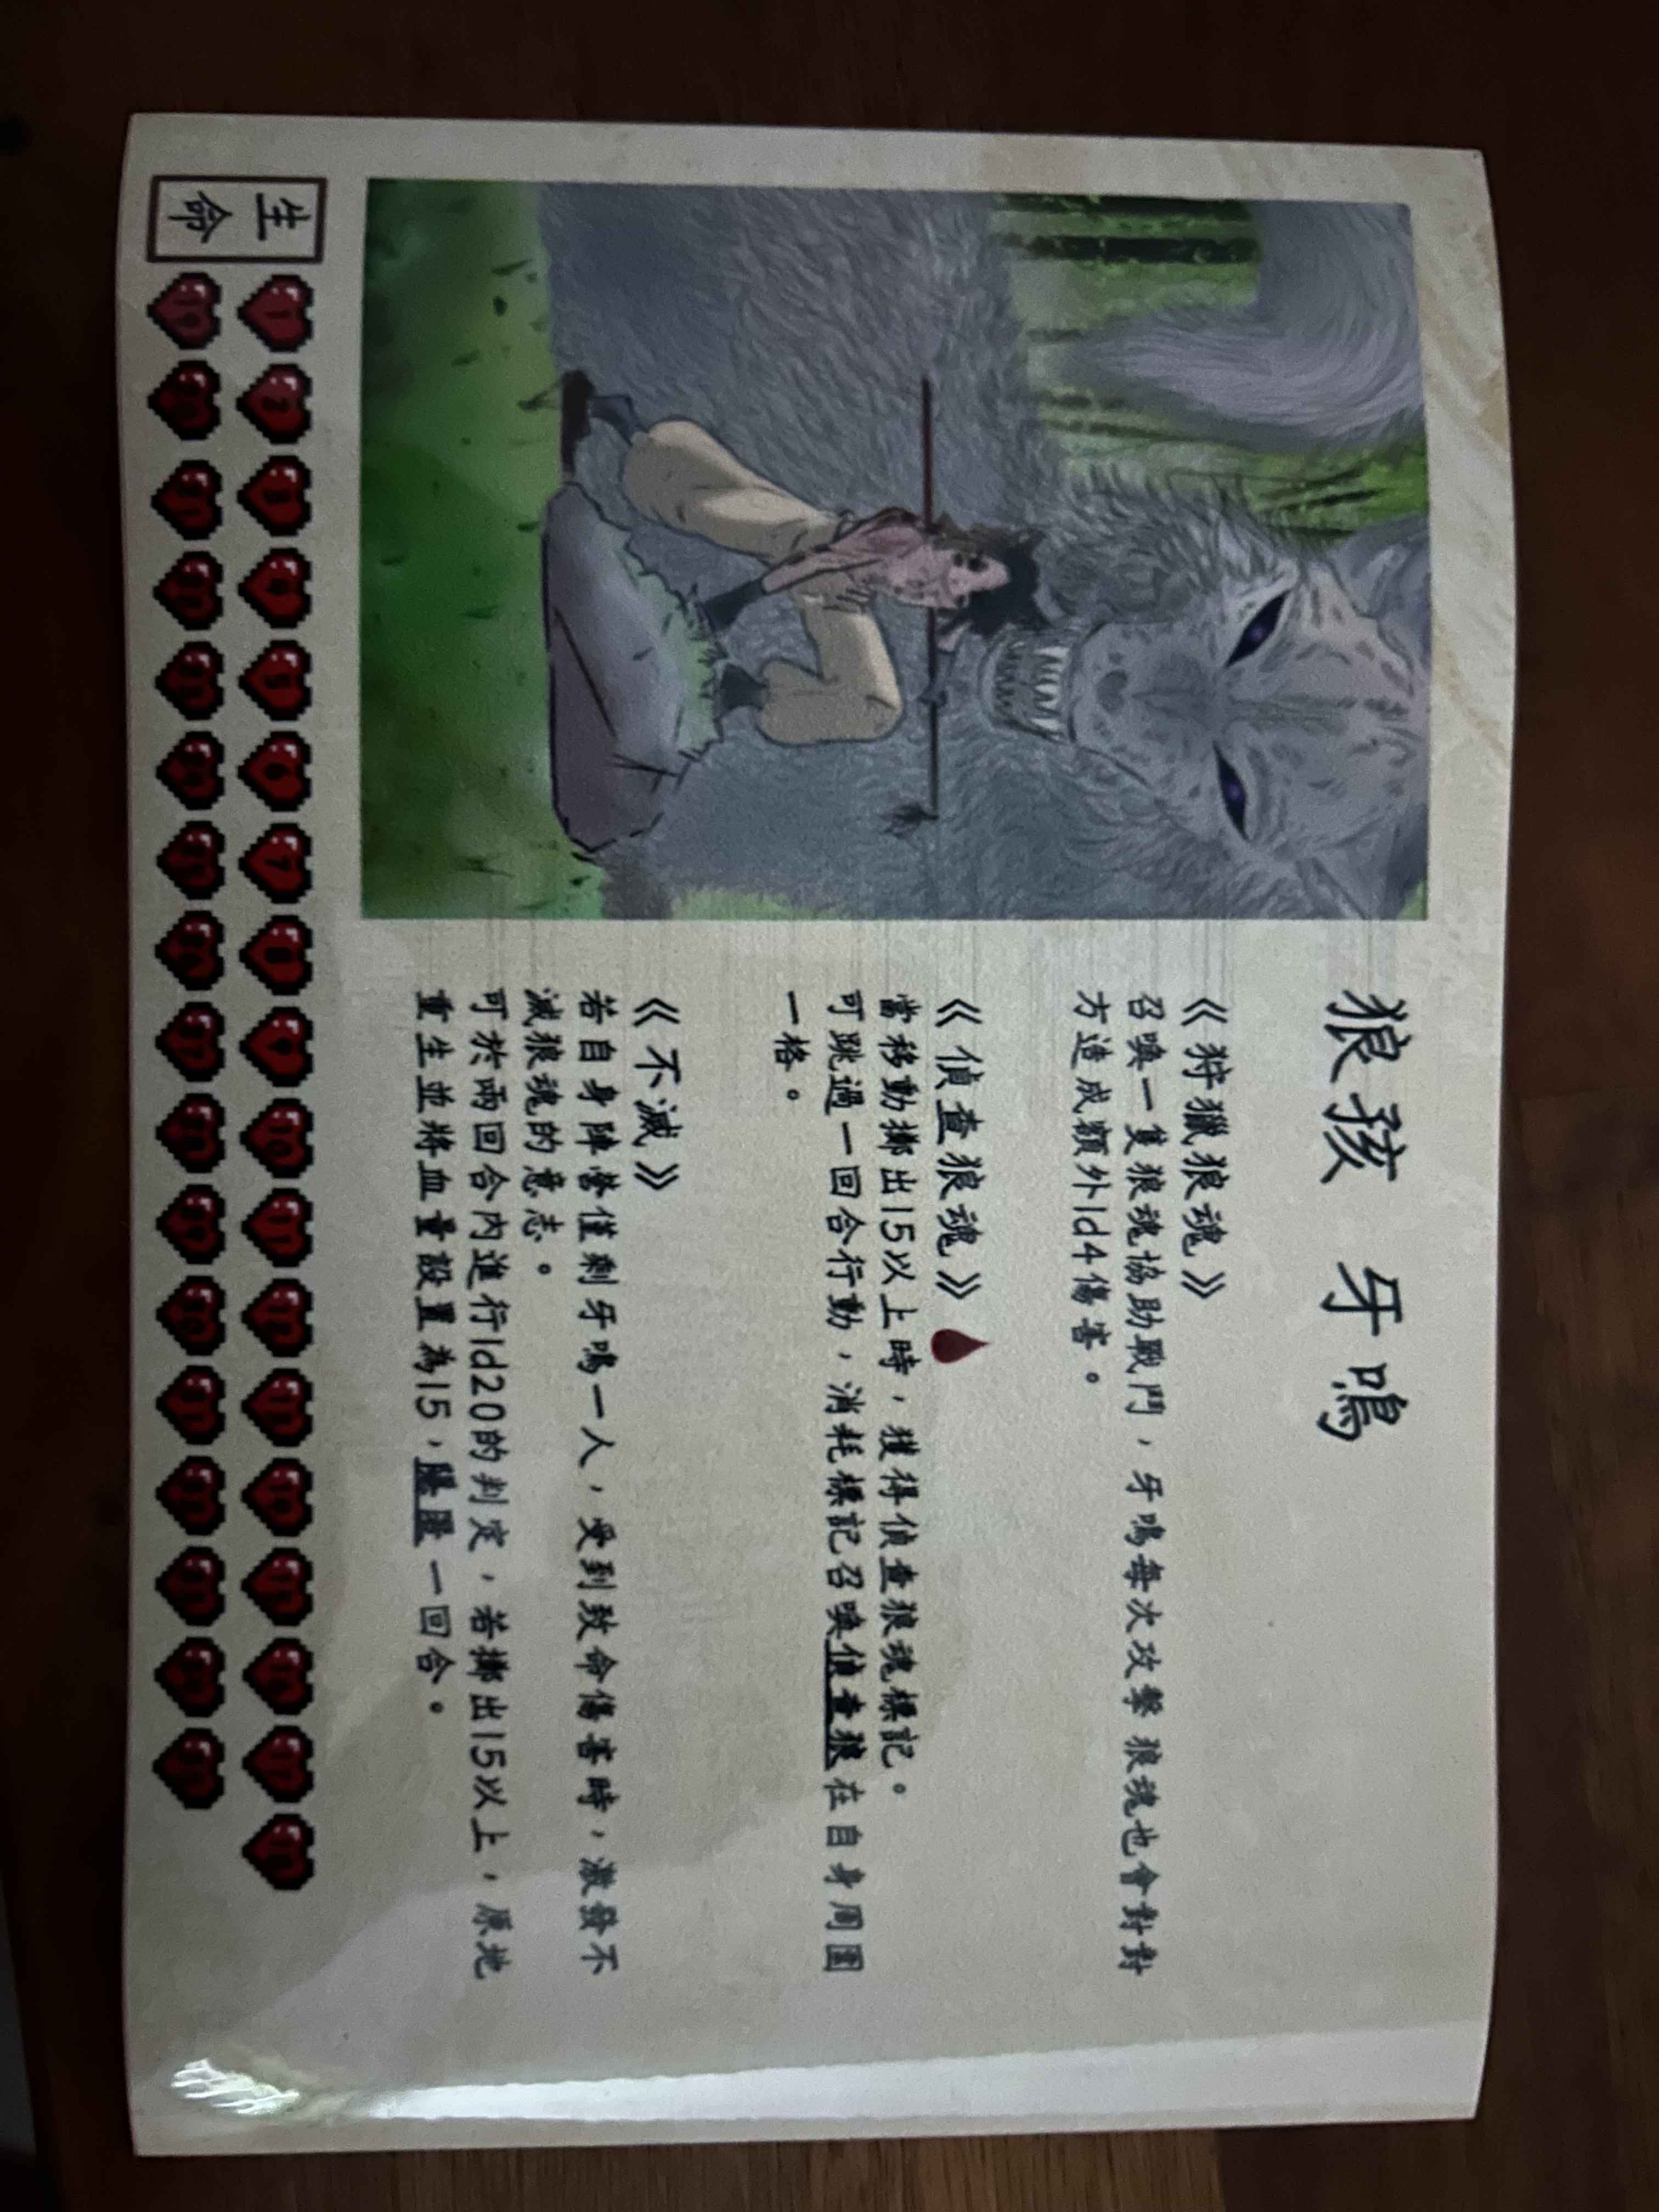 狼孩 牙鳴
《狩獵狼魂》
召喚一隻狼魂協助戰鬥，牙鳴每次攻擊 狼魂也會對對
方造成額外1d4傷害。
《偵查狼魂》
當移動擲出15以上時，獲得偵查狼魂標記。
可跳過一回合行動，消耗標記召喚偵查狼在自身周圍
一格。
《不滅》
若自身陣營僅剩牙鳴一人，受到致命傷害時，激發不
滅狼魂的意志。
可於兩回合內進行1d20的判定，若擲出15以上，原地
重生並將血量設置為15，一回合。
生命
1 2 3 4 5 6 7 8 9 10 11
19